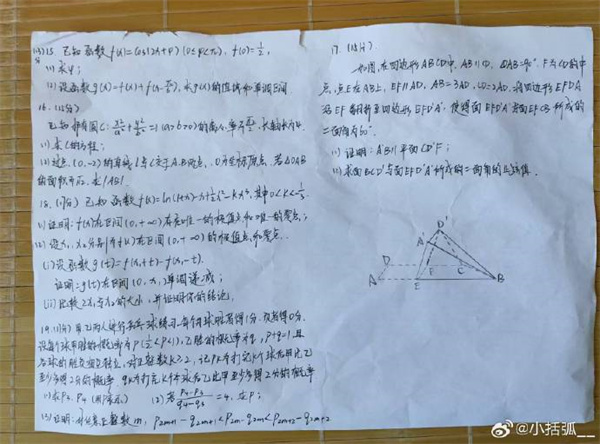 15. 已知函数 f(x)=cos(2x+φ) (0≤φ<π), f(0)=1/2.
(1) 求φ;
(2) 设函数 g(x)=f(x)+f(x-π/6), 求g(x)的值域和单调区间.
16. (15分)
已知椭圆C: x²/a²+y²/b²=1(a>b>0)的离心率为√2/2, 长轴长为4.
(1) 求C的方程;
(2) 过点(0,-2)的直线l与C交于A.B两点, O为坐标原点. 若△OAB
的面积为√2, 求|AB|
18. (17分) 已知函数 f(x)=ln(1+x)-x+½x²-kx³, 其中0<k<⅓.
(1) 证明: f(x)在区间(0,+∞)存在唯一的极值点和唯一的零点;
(2) 设x₁, x₂分别为f(x)在区间(0,+∞)的极值点和零点.
(i) 设函数 g(t)=f(x₁+t)-f(x₁-t).
证明: g(t)在区间(0,x₁)单调递减;
(ii) 比较2x₁与x₂的大小, 并证明你的结论.
19. (17分) 甲乙两人进行乒乓球练习, 每个球胜者得1分, 负者得0分.
设每个球甲胜的概率为P(½<P<1), 乙胜的概率为q, p+q=1, 且
各球的胜负相互独立, 对正整数k≥2, 记Pk为打完k个球后甲比乙
至少多得2分的概率, qk为打完k个球后乙比甲至少多得2分的概率
(1) 求P₃, P₄ (用P表示) (2) 若 (P₄-P₃)/(q₄-q₃) =4, 求P;
(3) 证明: 对任意正整数m, P2m+1 - q2m+1 < P2m - q2m < P2m+2 - q2m+2
17. (15分)
如图, 在四边形ABCD中, AB∥CD, ∠DAB=90°, F为CD的中
点, 点E在AB上, EF∥AD, AB=3AD, CD=2AD, 将四边形EFDA
沿EF翻折至四边形EFD'A', 使得面EFD'A'与面EFCB所成的
二面角为60°.
(1) 证明: A'B∥平面CD'F;
(2) 求面BCD'与面EFD'A'所成的二面角的正弦值.
D'
A'
D
F
C
A
E
B
@小括弧__